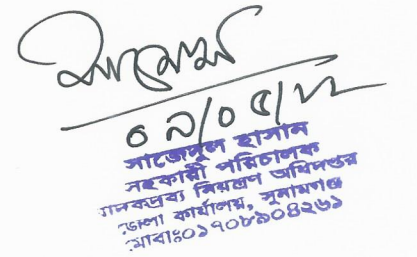 ০৯/০৫/২২
সাজেদুল হাসান
সহকারী পরিচালক
মাদকদ্রব্য নিয়ন্ত্রণ অধিদপ্তর
জেলা কার্যালয়, সুনামগঞ্জ
মোবাঃ০১৭০৮৯০৪২৬১